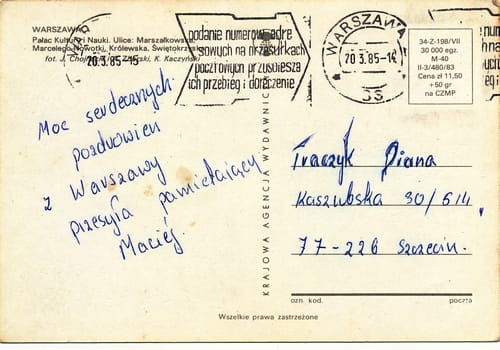 WARSZAWA
Pałac Kultury i Nauki. Ulice: Marszałkowska,
Marcelego Nowotki, Królewska, Świętokrzyska
fot. J. K. Kaczyński
20.3.85-15
podanie numerów adre
sowych na przesyłkach
pocztowych przyspiesza
ich przebieg i doręczenie
WARSZAWA
20.3.85-15
33
34-Z-198/VII
30 000 egz.
M-40
II-3/480/83
Cena zł 11,50
+50 gr
na CZMP
Moc serdecznych
pozdrowień
z Warszawy
przesyła pamiętający
Maciej.
KRAJOWA AGENCJA WYDAWNIC
Traczyk Diana
Kaszubska 30/614
77-226 Szczecin.
ozn. kod. poczta
Wszelkie prawa zastrzeżone